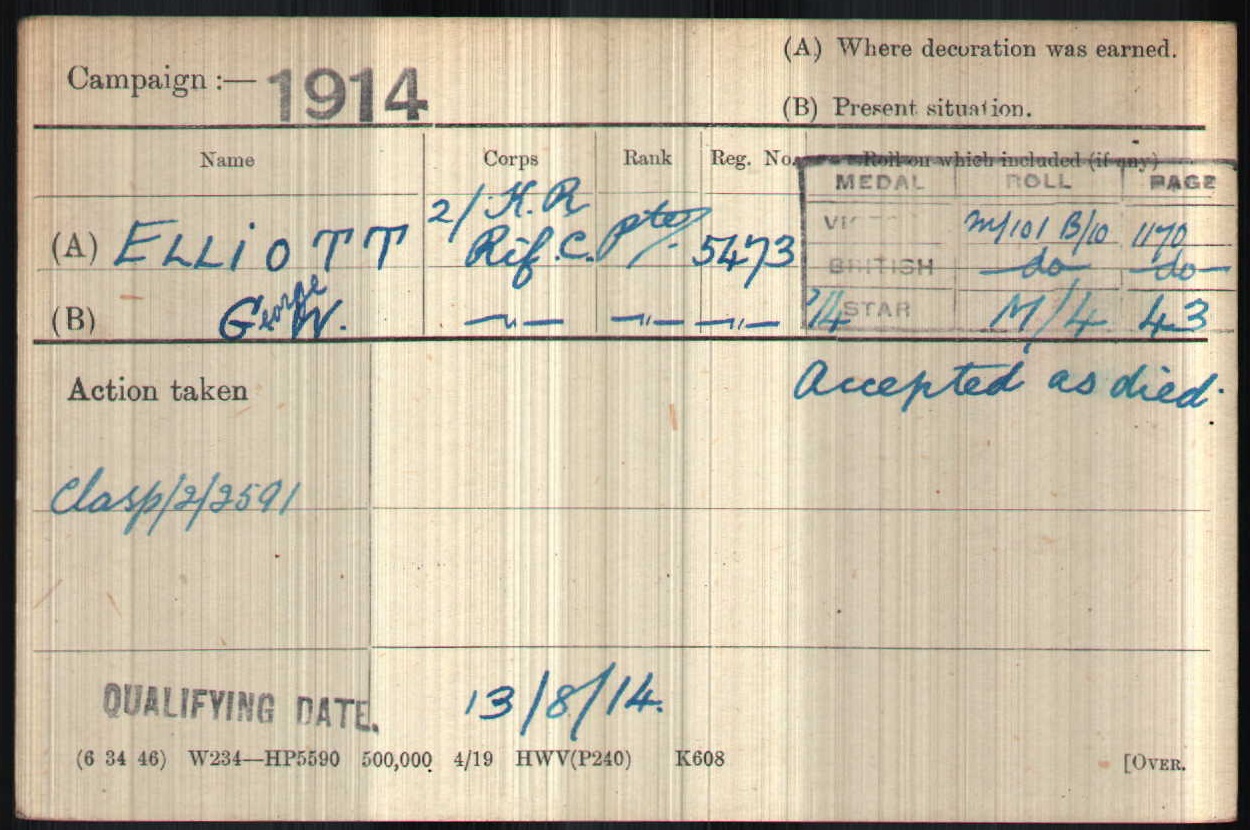 Campaign :— 1914
(A) Where decoration was earned.
(B) Present situation.
Name Corps Rank Reg. No. Roll on which included (if any)
MEDAL ROLL PAGE
(A) ELLIOTT 2/ K.R Rif.C. Pte 5473
M/101 B/10 1170
BRITISH —do— —do—
(B) George W. —"— —"— —"— 14 STAR M/4 43
Action taken
Accepted as died.
Clasp/2/2591
QUALIFYING DATE. 13/8/14.
(6 34 46) W234—HP5590 500,000 4/19 HWV(P240) K608 [OVER.